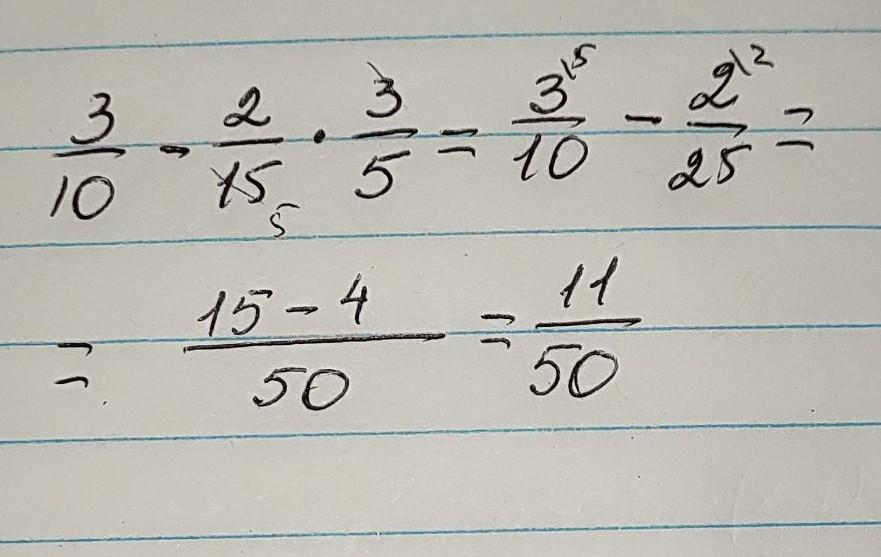 3/10 - 2/15 5 · 3/5 = 3\5/10 - 2\2/25 =
= 15 - 4/50 = 11/50